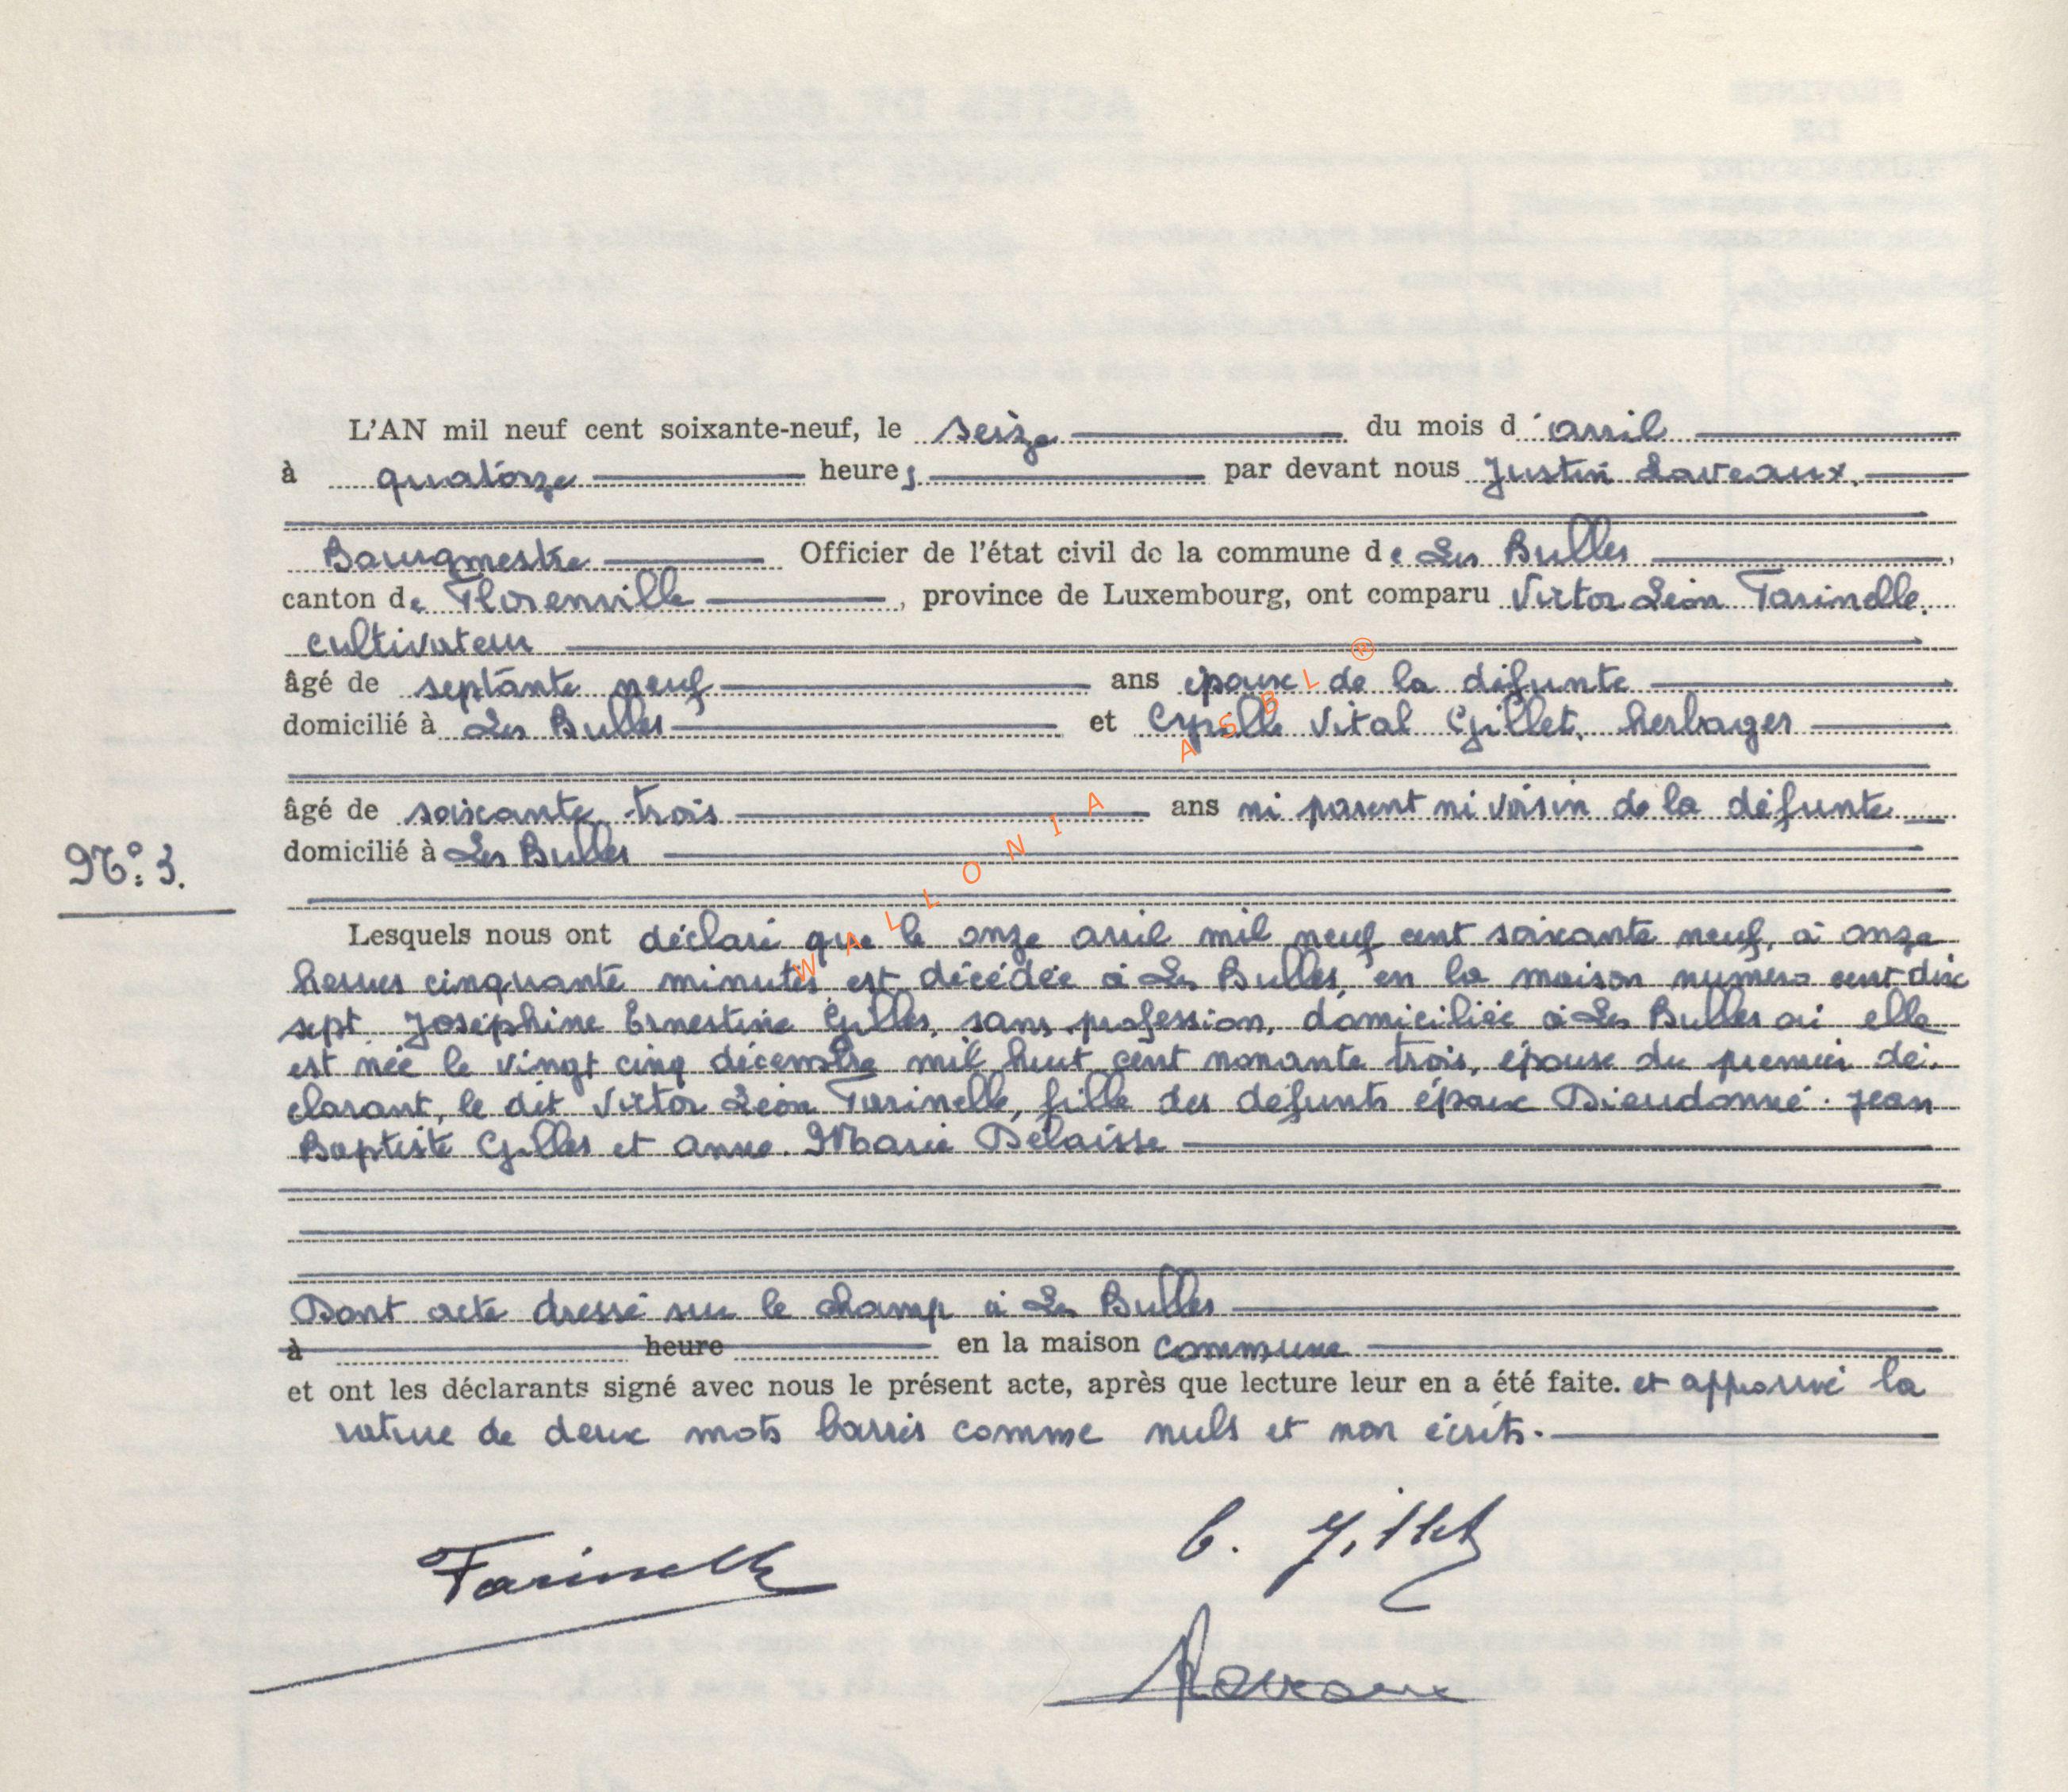 L'AN mil neuf cent soixante-neuf, le seize du mois d'avril
à quatorze heures par devant nous Justin Laveaux,
Bourgmestre Officier de l'état civil de la commune de Les Bulles,
canton de Florenville, province de Luxembourg, ont comparu Victor Léon Farinelle,
cultivateur
âgé de septante neuf ans époux de la défunte
domicilié à Les Bulles et Cyrille Vital Gillet, herbager
âgé de soixante trois ans ni parent ni voisin de la défunte
domicilié à Les Bulles
N°: 3.
Lesquels nous ont déclaré que le onze avril mil neuf cent soixante neuf, à onze
heures cinquante minutes est décédée à Les Bulles, en la maison numéro cent dix
sept, Joséphine Ernestine Gilles, sans profession, domiciliée à Les Bulles où elle
est née le vingt cinq décembre mil huit cent nonante trois, épouse du premier dé-
clarant, le dit Victor Léon Farinelle, fille des défunts époux Dieudonné-Jean
Baptiste Gilles et Anne-Marie Delaisse
Dont acte dressé sur le champ à Les Bulles
à heure en la maison commune
et ont les déclarants signé avec nous le présent acte, après que lecture leur en a été faite. et approuvé la
rature de deux mots barrés comme nuls et non écrits.
Farinelle
C. Gillet
Laveaux
WALLONIA ASBL ®